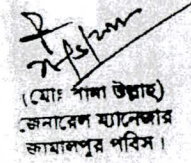 (মোঃ পানা উল্লাহ)
জেনারেল ম্যানেজার
জামালপুর পবিস।